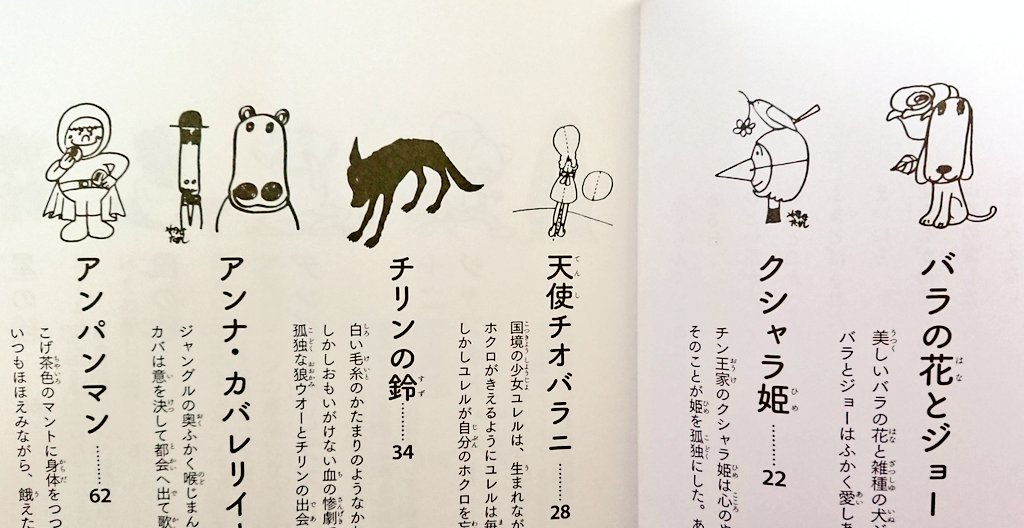 バラの花とジョー
美しいバラの花と雑種の犬
バラとジョーはふかく愛し
クシャラ姫……22
チン王家のクシャラ姫は心の
そのことが姫を孤独にした。あ
天使チオバラニ……28
国境の少女ユレルは、生まれなが
ホクロがきえるようにユレルは毎
しかしユレルが自分のホクロを忘
チリンの鈴……34
白い毛糸のかたまりのような
しかしおもいがけない血の惨劇
孤独な狼ウオーとチリンの出会
アンナ・カバレリイ
ジャングルの奥ふかく喉じまん
カバは意を決して都会へ出て歌
アンパンマン……62
こげ茶色のマントに身体をつつ
いつもほほえみながら、餓えた